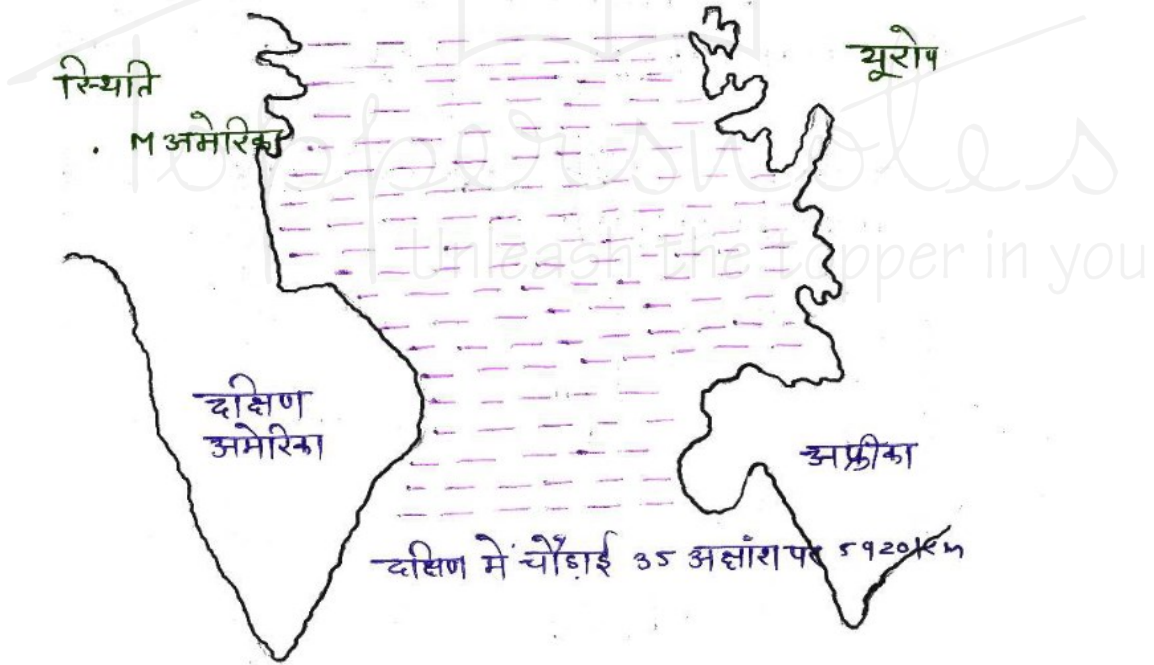 स्थिति
यूरोप
. N अमेरिका
Toppersnotes
Unleash the topper in you
दक्षिण
अमेरिका
अफ्रीका
दक्षिण में चौड़ाई 35 अक्षांश पर 5920 Km